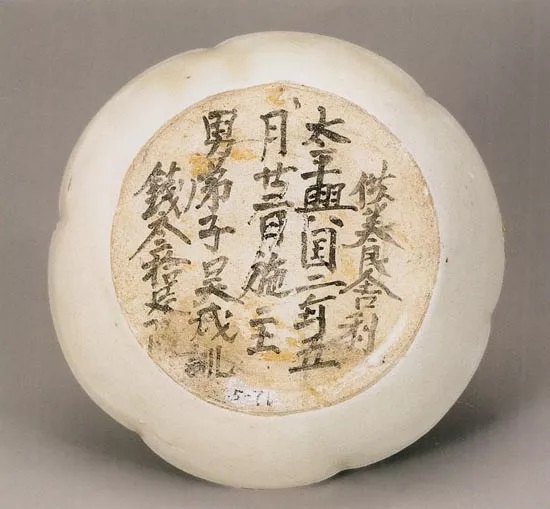 供養舍利
太平興国二年五
月廿二日施主
男弟子吳成訓
錢叁拾足
5-71